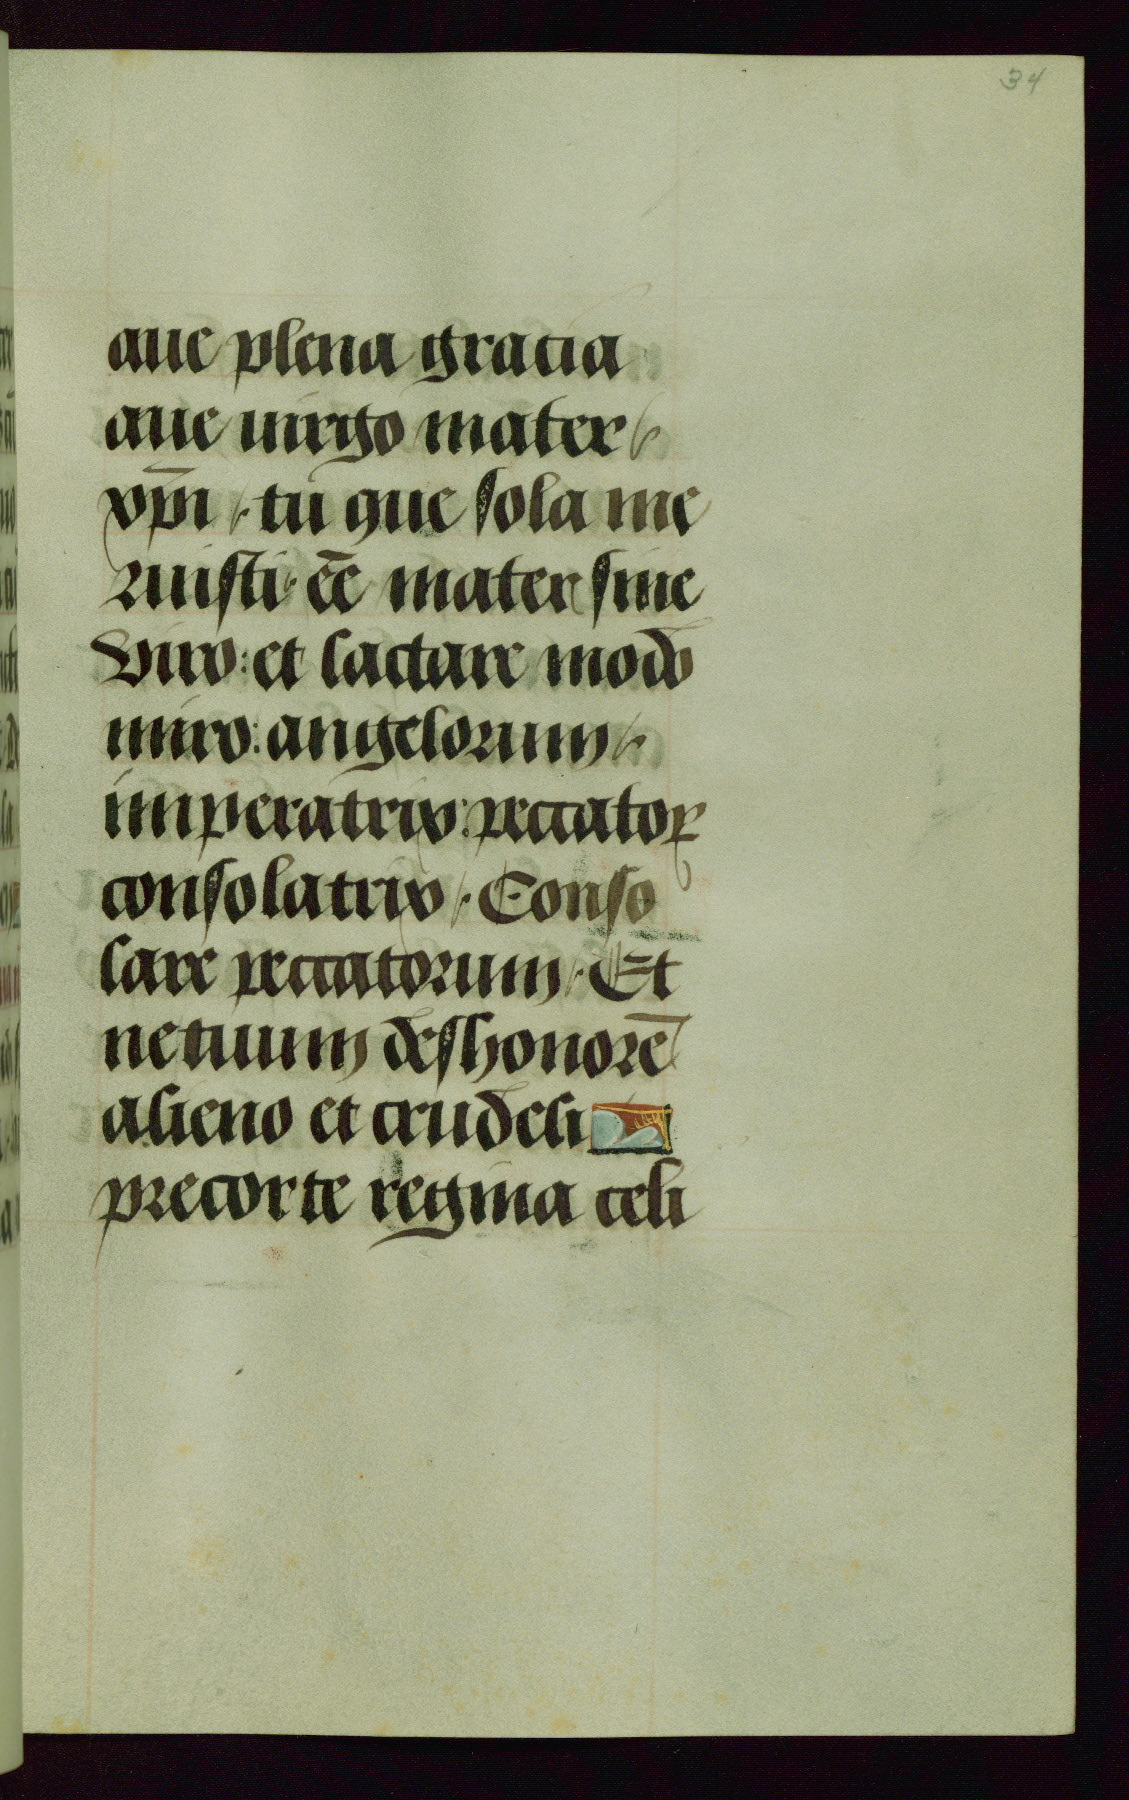 34
aue plena gracia
aue uirgo mater
xp̄i · tu que sola me
ruisti · ēē mater sine
viro: et lactare modo
miro: angelorum ·
imperatrix: peccatoꝝ
consolatrix · Conso
lare peccatorum · Et
ne tuum deshonorē
alieno et crudeli
precor te regina celi